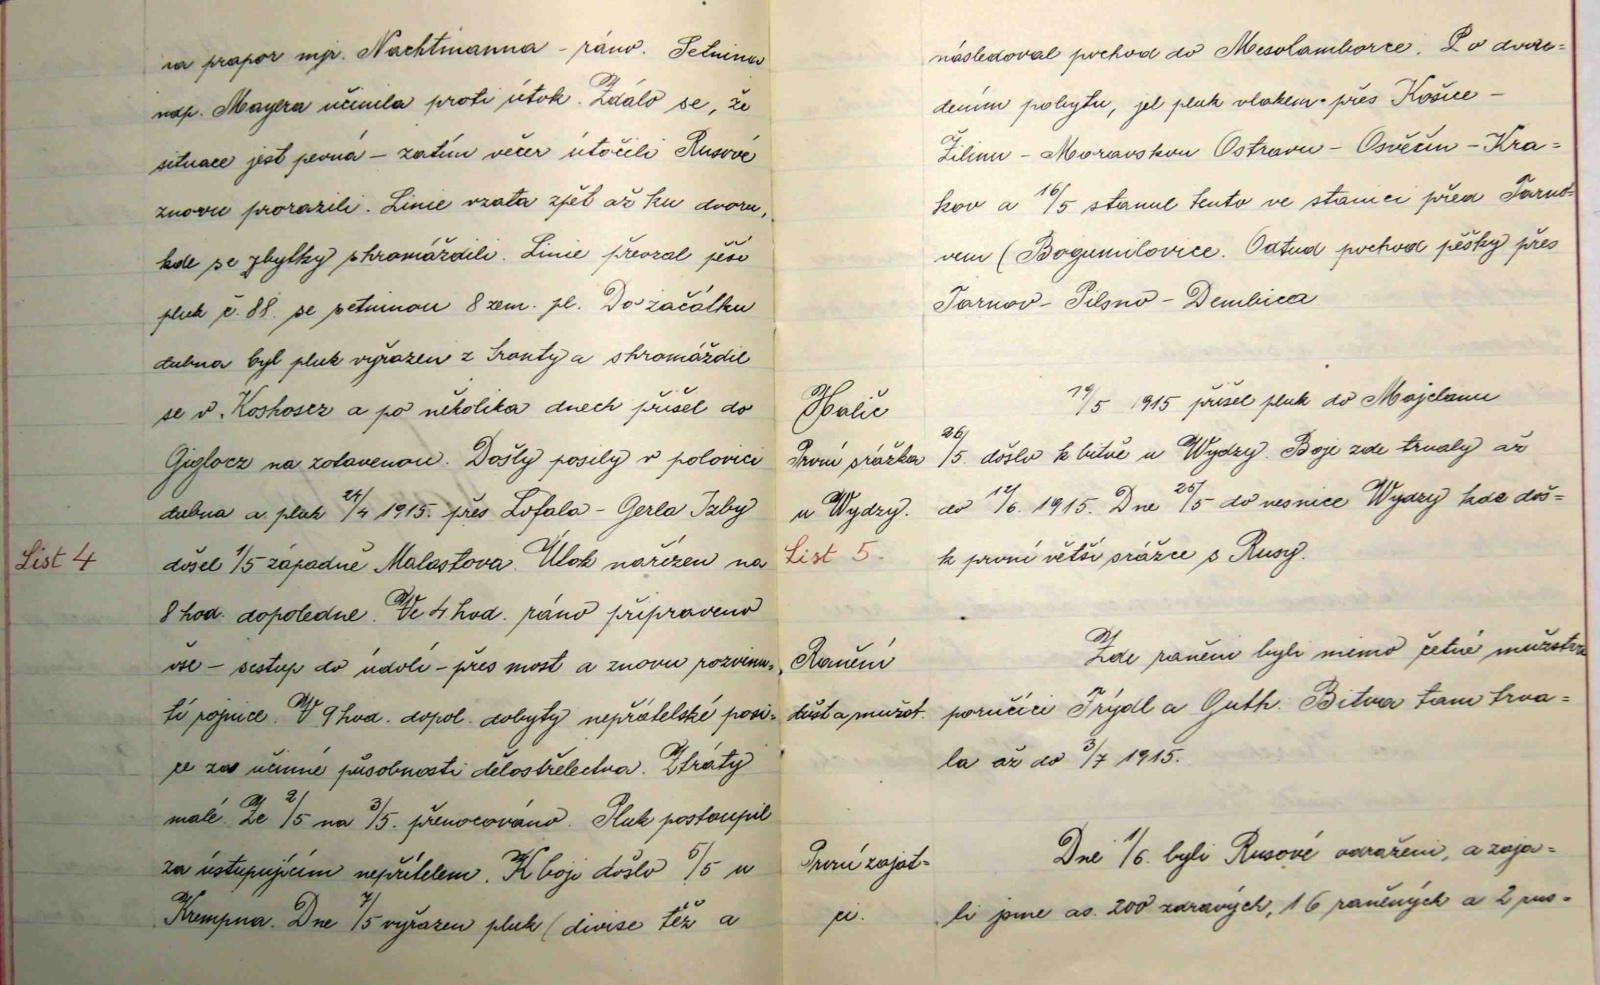 na prapor mjr. Nachtmanna - ráno. Setnina
ndp. Mayera učinila proti útok. Zdálo se, že
situace jest pevná - zatím večer útočili Rusové
znovu prorazili. Linie vzata zpět až ku dvoru,
kde se zbytky shromáždili. Linie převzal pěší
pluk č. 88. se setninou 8 zem. pl. Do začátku
dubna byl pluk vyřazen z fronty a shromáždil
se v Koshosez a po několika dnech přišel do
Giglocz na zotavenou. Došly posily v polovici
dubna a pluk 24/4 1915. přes Lofala - Gerla Izby
List 4
došel 1/5 západně Malastova. Útok nařízen na
8 hod. dopoledne. Ve 4 hod. ráno připraveno
vše - sestup do údolí - přes most a znovu rozvinu-
tí rojnice. V 9 hod. dopol. dobyty nepřátelské posi-
ce za účinné působnosti dělostřelectva. Ztráty
malé. Ze 2/5 na 3/5. přenocováno. Pluk postoupil
za ústupujícím nepřítelem. K boji došlo 5/5 u
Krempna. Dne 7/5 vyřazen pluk (divise též a
následoval pochod do Mesolamborce. Po dvou-
denním pobytu, jel pluk vlakem přes Košice -
Žilinu - Moravskou Ostravu - Osvěčín - Kra-
kov a 16/5 stanul tento ve stanici před Tarno-
vem (Bogumilovice. Odtud pochod pěšky přes
Tarnov - Pilsno - Dembica
Halič
19/5 1915 přišel pluk do Majdanu
První srážka
26/5. došlo k bitvě u Wydzy. Boje zde trvaly až
u Wydzy.
do 12/6. 1915. Dne 25/5 do vesnice Wydzy kde doš-
List 5.
k první větší srážce s Rusy.
Ranění
Zde raněni byli mimo četné mužstva
důst a mužst.
poručíci Frýdl a Guth. Bitva tam trva-
la až do 3/7 1915.
První zajat-
Dne 1/6. byli Rusové odraženi, a zaja-
ci.
li jsme as. 200 zdravých, 16 raněných a 2 rus-